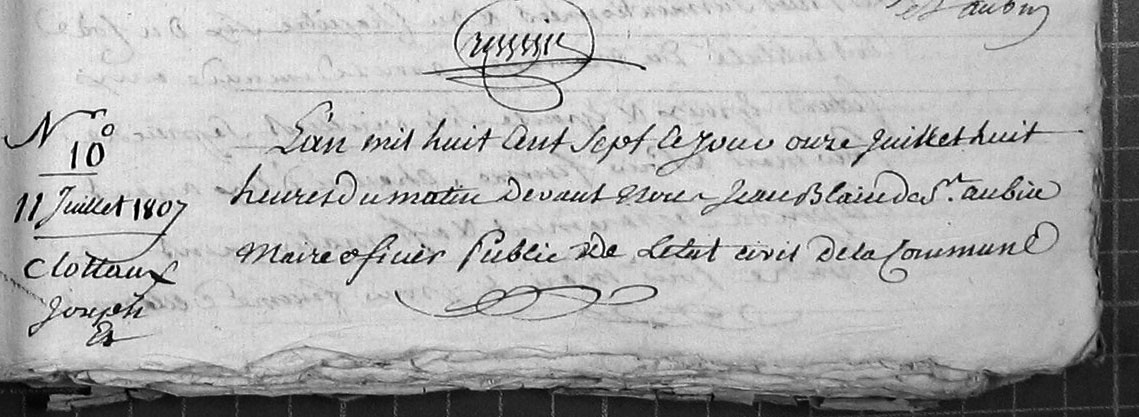 St aubin
N° 10
11 Juillet 1807
Clottaux
Joseph
Et
L'an mil huit Cent Sept le jour onze juillet huit
heures du matin devant Nous Jean Blaise de St. aubin
Maire oficier Public De Letat civil de la Commune